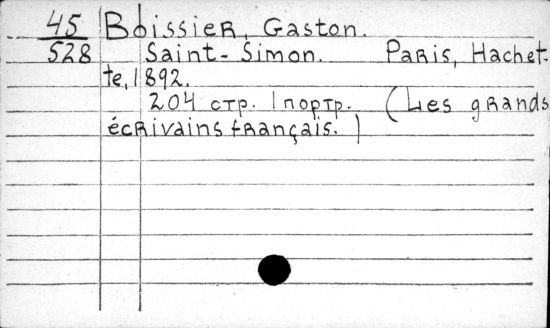 45 Boissier, Gaston.
528 Saint-Simon. Paris, Hachet-
te, 1892.
204 стр. 1 портр. (Les grands
écrivains français.)